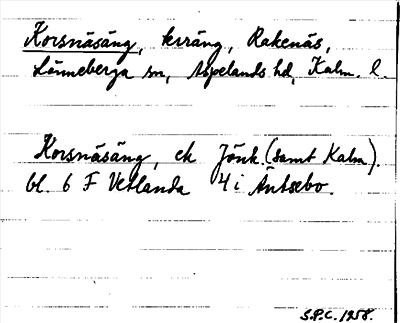 Korsnäsäng, kvräng, Rakenäs,
Lönneberga sn, Aspelands hd, Kalm. l.
Korsnäsäng, ek Jönk. (samt Kalm).
bl. 6 F Vetlanda 4 i Äntsebo.
S.P.C. 1958.